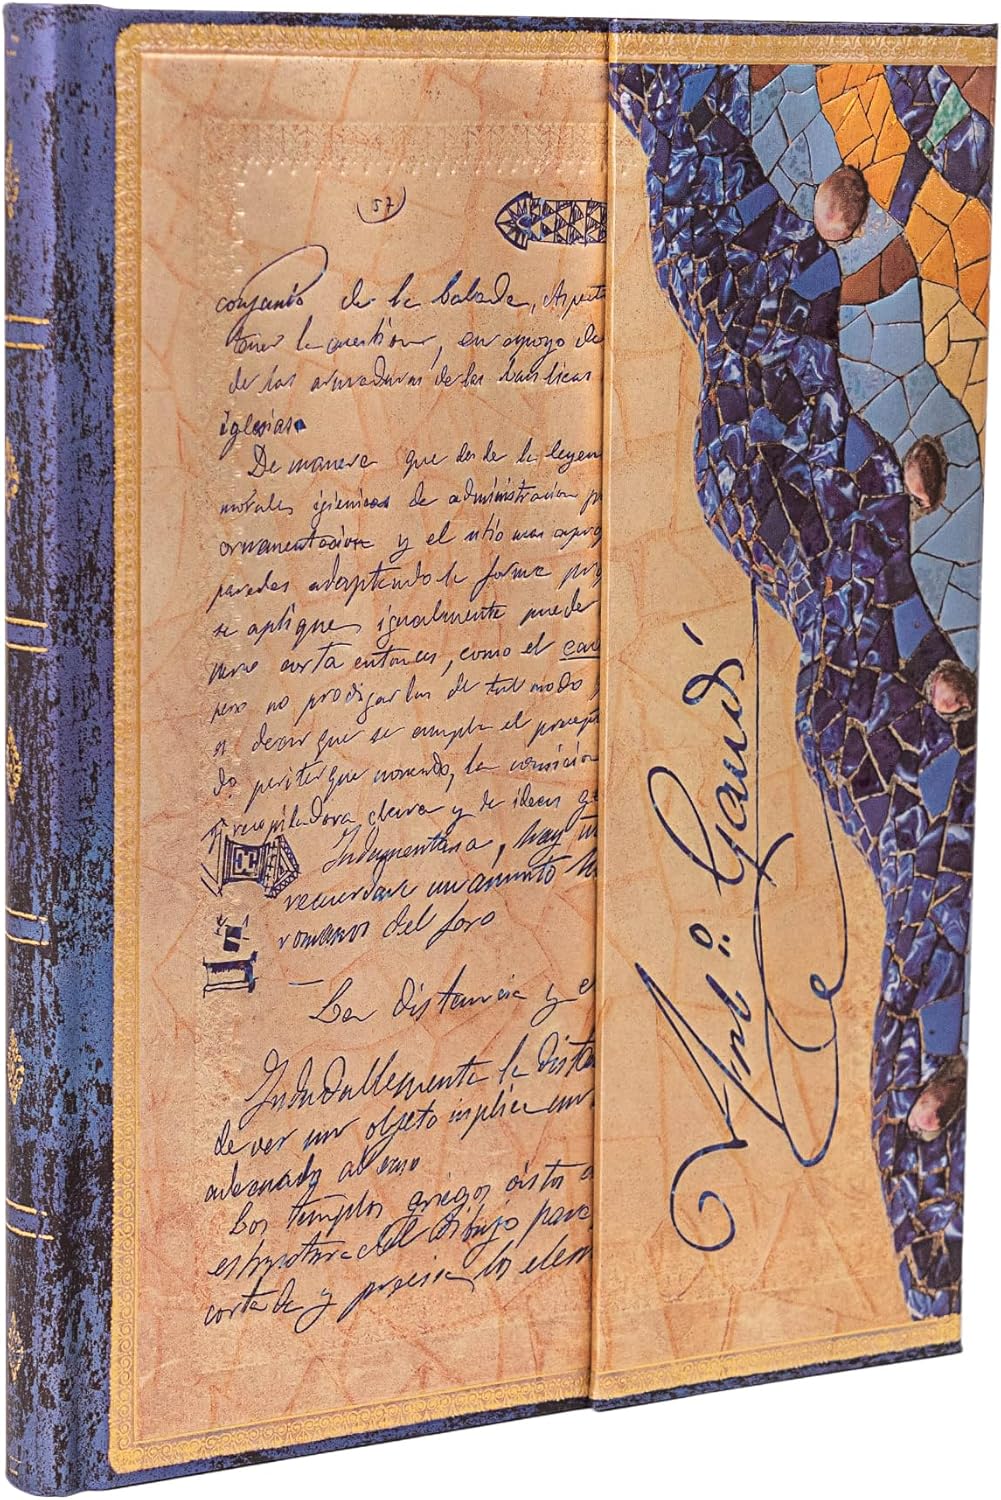 57
conjunto de la balada,
tener la cuestion, en apoyo de
de las armaduras de las basilicas
iglesias.
De manera que desde la leyen
morales, igienicas de administracion p
ornamentacion y el sitio mas aprop
paredes adaptando la forma
se aplique, igualmente puede
corta entonces, como el
pero no prodigarlas de tal modo
decir que se cumpla el precep
do
recopiladora clara y de ideas
Indumentaria, hay
recuerdase un asunto
romanos del foro
— La distancia y el
Indudablemente la dista
de ver un objeto implica un
adecuado al caso
Los templos griegos
estructura del dibujo para
cortada y precisa los elem
Ant.o Gaudí